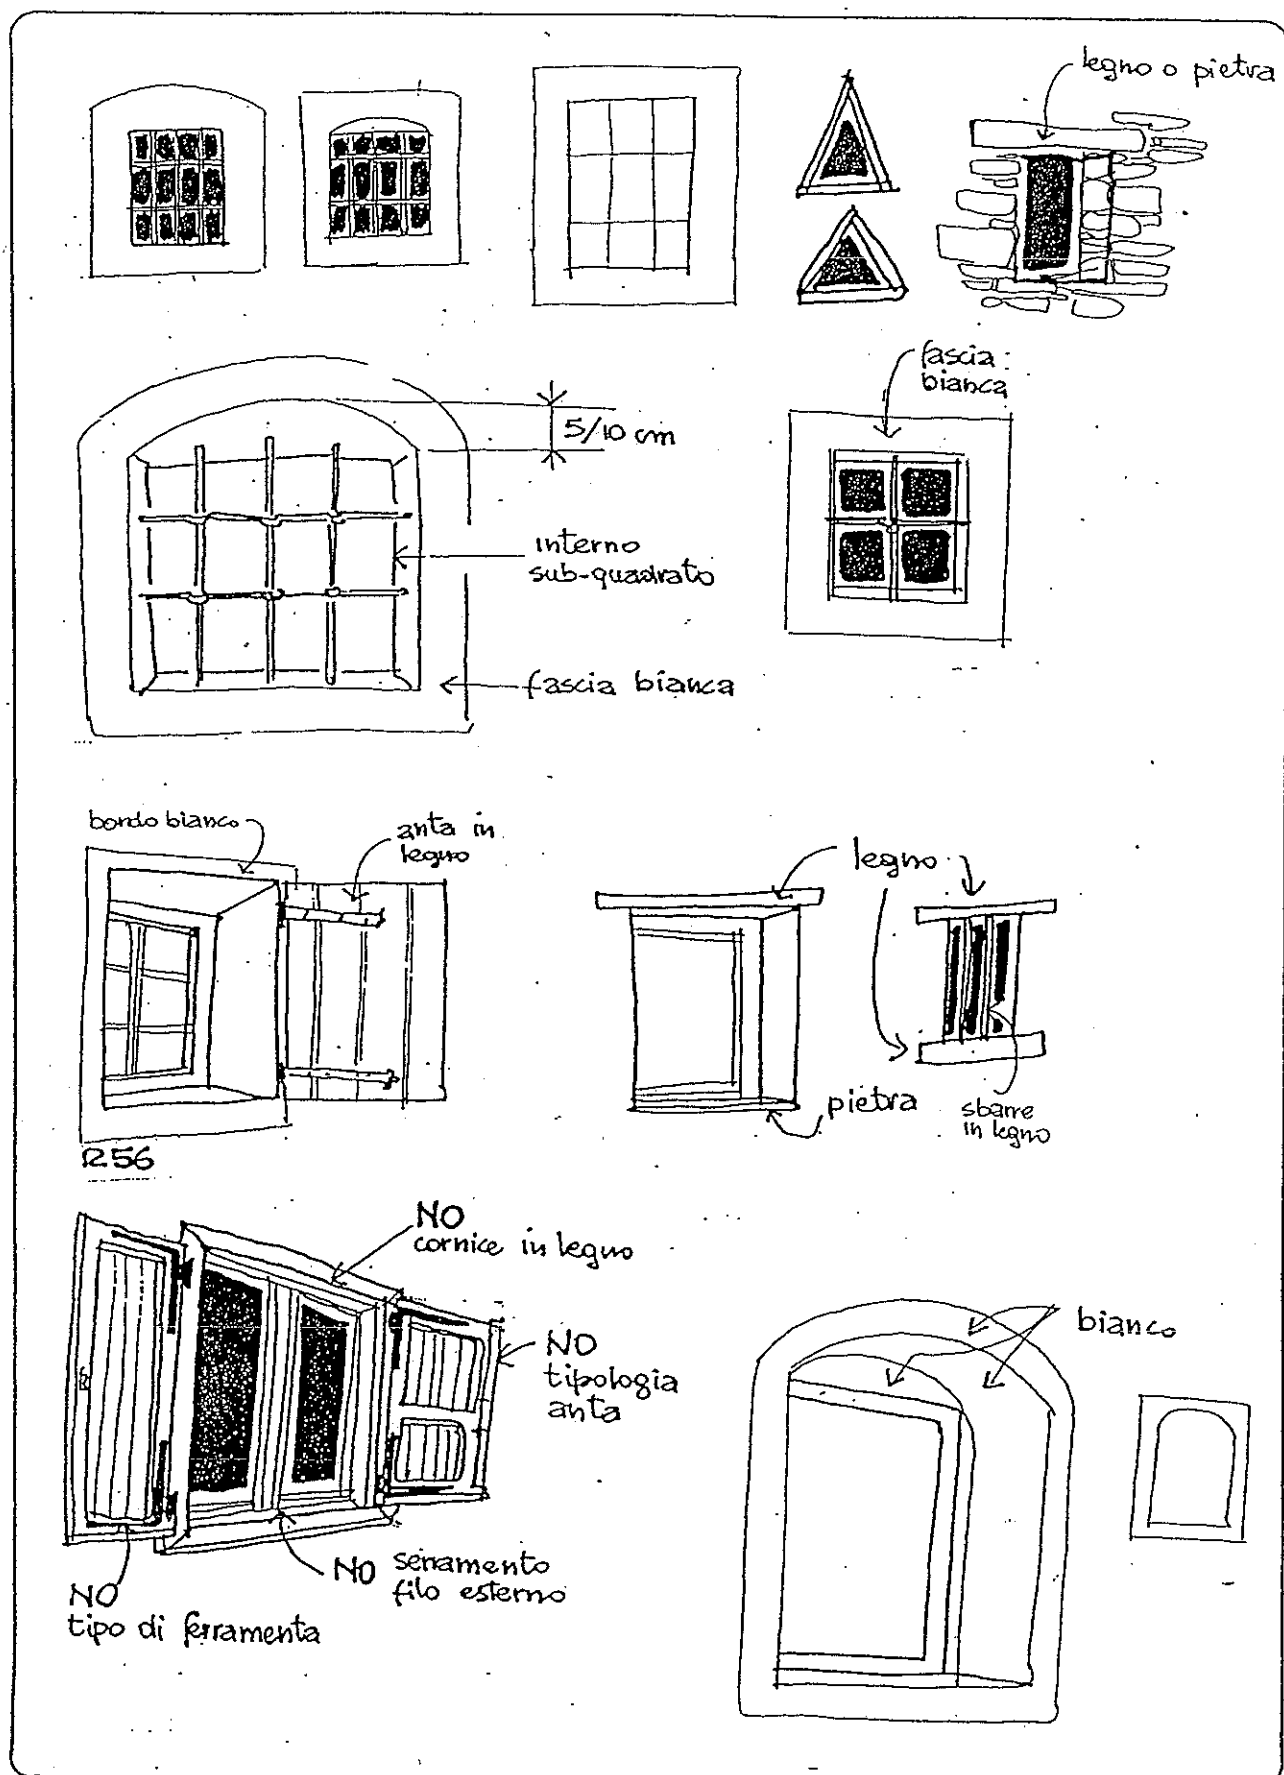 legno o pietra
fascia
bianca
5/10 cm
interno
sub-quadrato
fascia bianca
bordo bianco
anta in
legno
legno
pietra
sbarre
in legno
R56
NO
cornice in legno
NO
tipologia
anta
bianco
NO serramento
filo esterno
NO
tipo di ferramenta